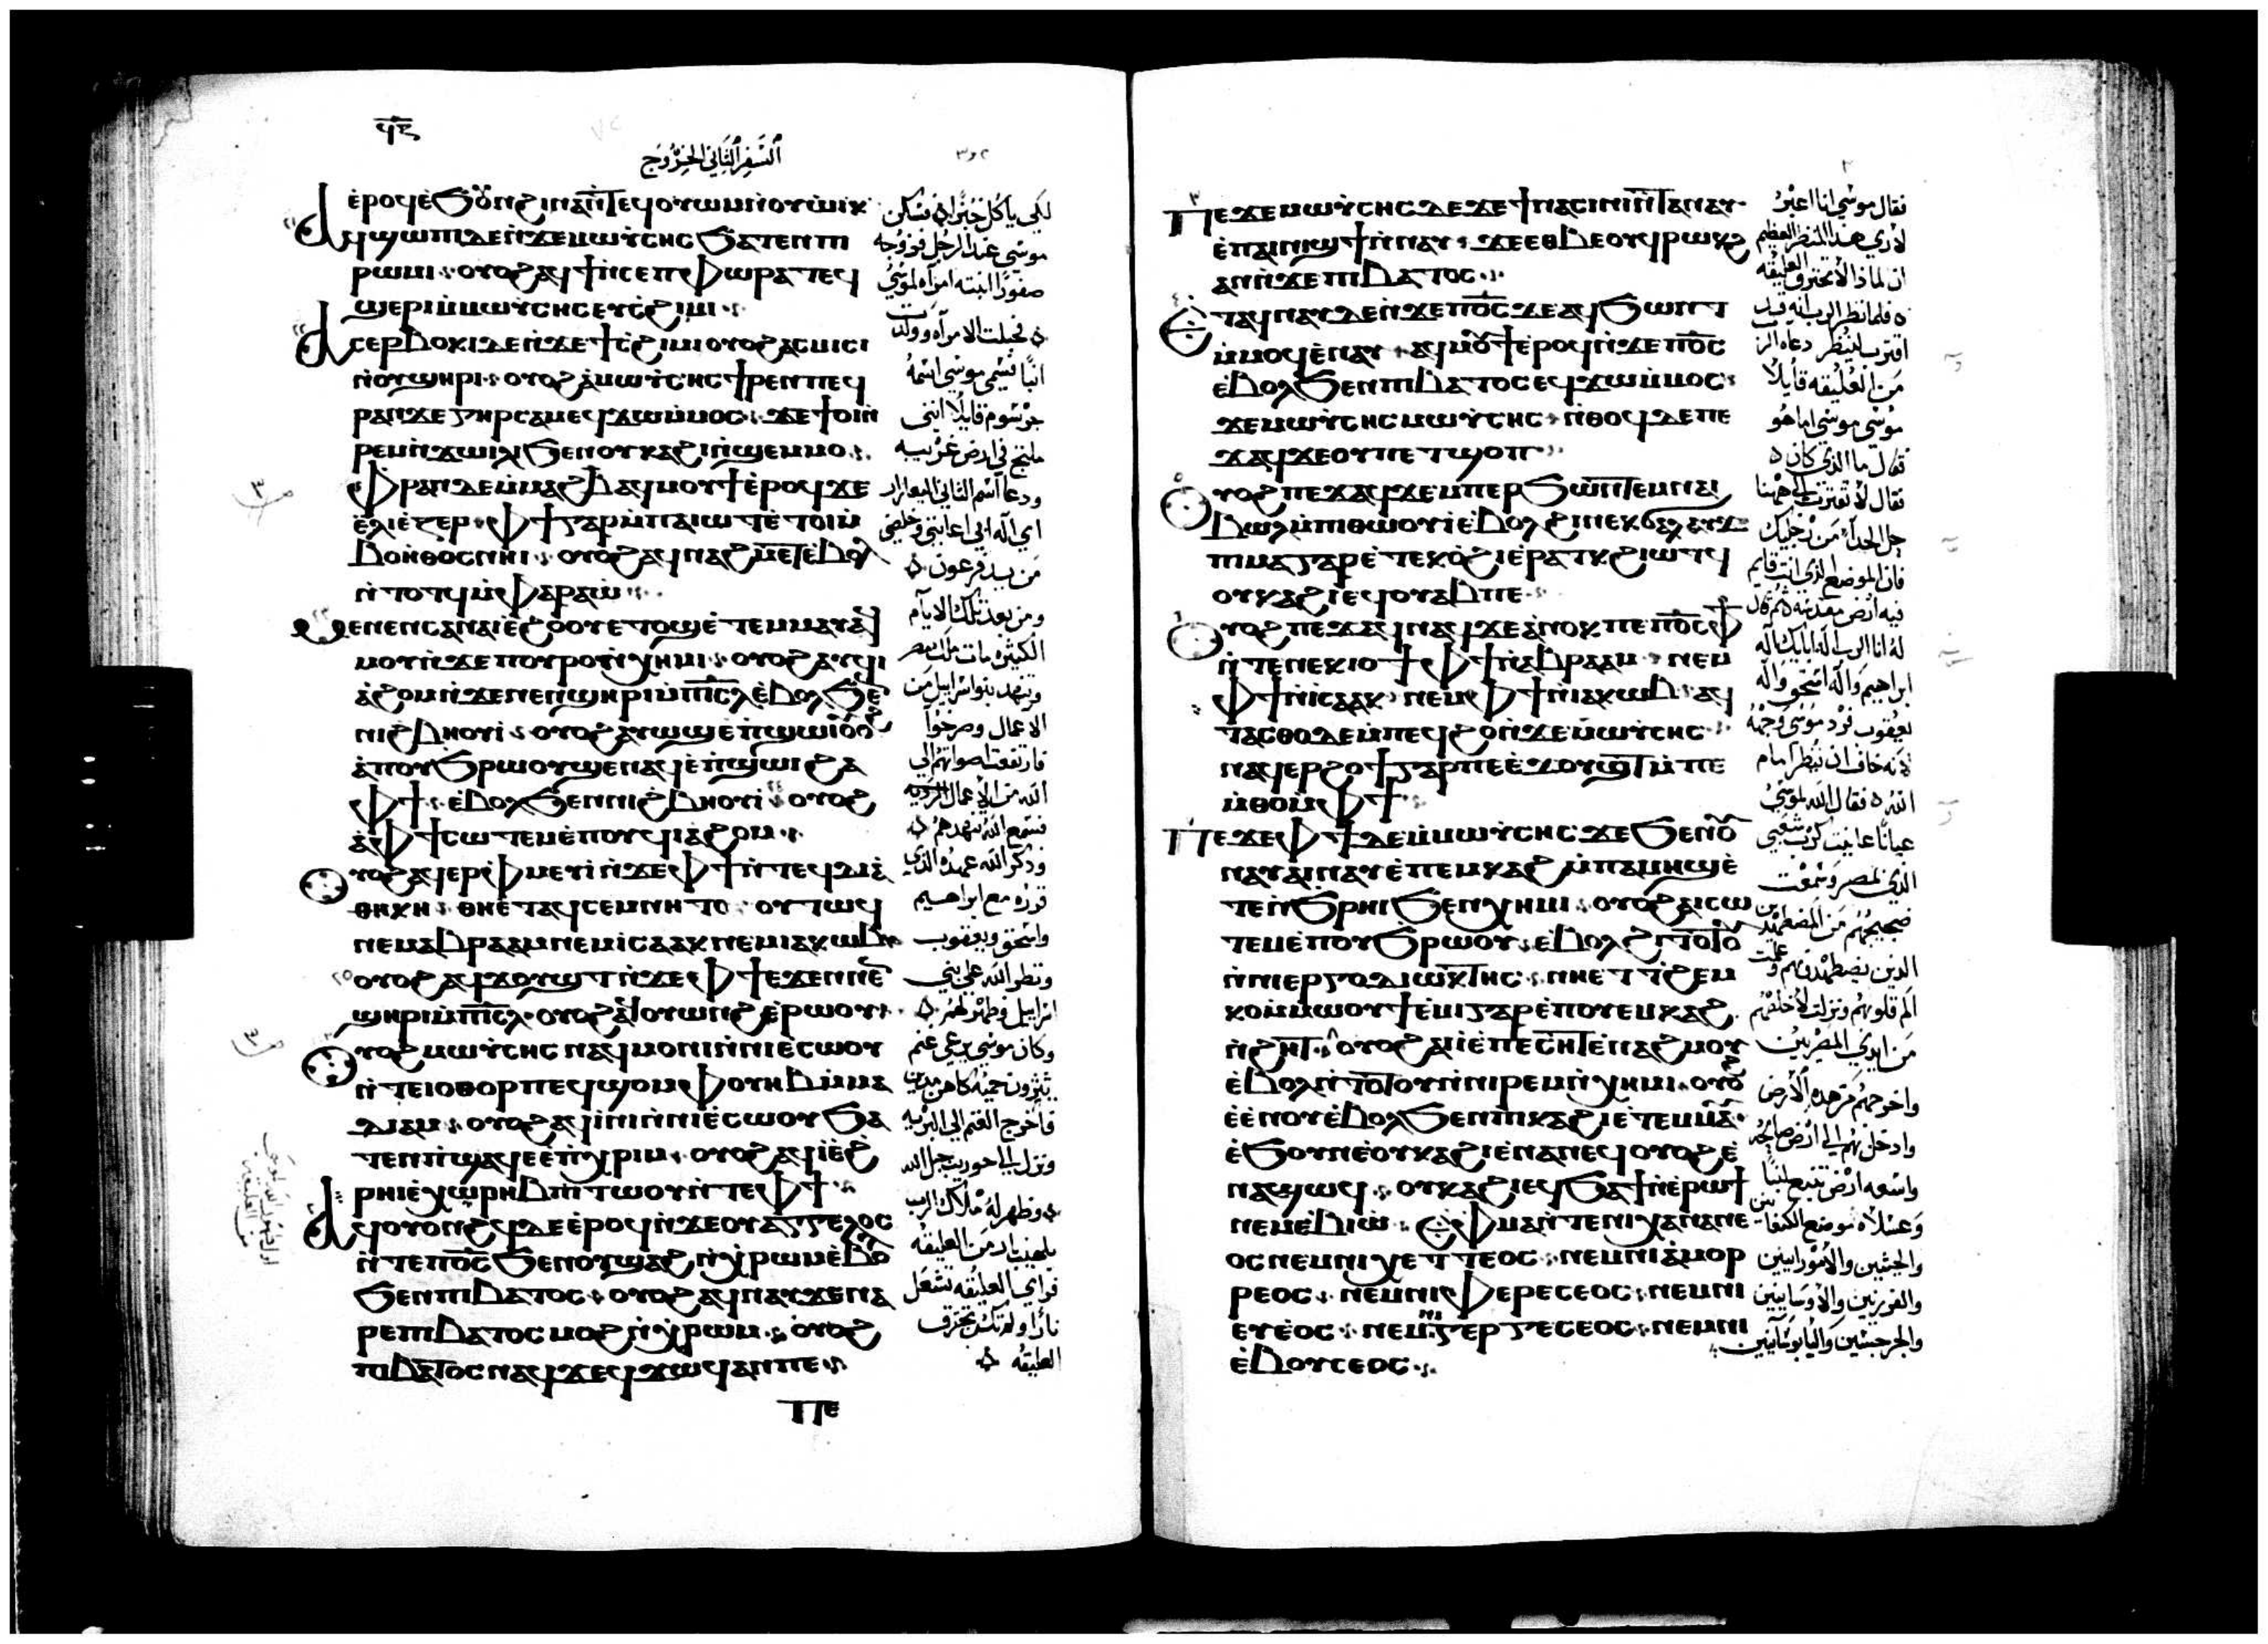 ϥⲍ
السفر الثاني الخروج
ⲉⲣⲟϥ ⲉϧⲟⲩⲛ ϩⲓⲛⲁ ⲛⲧⲉϥⲟⲩⲱⲙ ⲛⲟⲩⲱⲓⲕ
ⲁϥϣⲱⲡⲓ ⲇⲉ ⲛϫⲉ ⲙⲱⲩⲥⲏⲥ ϧⲁⲧⲉⲛ ⲡⲓ
ⲣⲱⲙⲓ ⲟⲩⲟϩ ⲁϥϯ ⲛⲥⲉⲡⲫⲱⲣⲁ ⲧⲉϥ
ϣⲉⲣⲓ ⲙⲙⲱⲩⲥⲏⲥ ⲉⲩⲥϩⲓⲙⲓ
ⲁⲥⲉⲣⲃⲟⲕⲓ ⲇⲉ ⲛϫⲉ ϯⲥϩⲓⲙⲓ ⲟⲩⲟϩ ⲁⲥⲙⲓⲥⲓ
ⲛⲟⲩϣⲏⲣⲓ ⲟⲩⲟϩ ⲁⲙⲱⲩⲥⲏⲥ ϯⲣⲉⲛ ⲡⲉϥ
ⲣⲁⲛ ϫⲉ ⲅⲏⲣⲥⲁⲙ ⲉϥϫⲱ ⲙⲙⲟⲥ ϫⲉ ϯⲟⲓ ⲛ
ⲣⲉⲙⲛϫⲱⲓⲗⲓ ϧⲉⲛ ⲟⲩⲕⲁϩⲓ ⲛϣⲉⲙⲙⲟ
ⲫⲣⲁⲛ ⲇⲉ ⲙⲙⲁϩⲃ ⲁϥⲙⲟⲩϯ ⲉⲣⲟϥ ϫⲉ
ⲉⲗⲓⲉⲍⲉⲣ ⲫϯ ⲅⲁⲣ ⲙⲡⲁⲓⲱⲧ ⲉⲧⲟⲓ ⲙ
ⲃⲟⲏⲑⲟⲥ ⲛⲏⲓ ⲟⲩⲟϩ ⲁϥⲛⲁϩⲙⲉⲧ ⲉⲃⲟⲗ
ⲛⲧⲟⲧϥ ⲙⲫⲁⲣⲁⲱ
ⲙⲉⲛⲉⲛⲥⲁ ⲛⲁⲓⲉϩⲟⲟⲩ ⲉⲧⲟϣ ⲉⲧⲉⲙⲙⲁⲩ ⲁϥ
ⲙⲟⲩ ⲛϫⲉ ⲡⲟⲩⲣⲟ ⲛⲭⲏⲙⲓ ⲟⲩⲟϩ ⲁⲩϥⲓ
ⲁϩⲟⲙ ⲛϫⲉ ⲛⲉⲛϣⲏⲣⲓ ⲙⲡⲓⲥⲗ ⲉⲃⲟⲗ ϧⲉⲛ
ⲛⲓϩⲃⲏⲟⲩⲓ ⲟⲩⲟϩ ⲁⲩⲱϣ ⲉⲡϣⲱⲓ ⲟⲩⲟϩ
ⲁⲡⲟⲩϧⲣⲱⲟⲩ ϣⲉⲛⲁϥ ⲉⲡϣⲱⲓ ϩⲁ
ⲫϯ ⲉⲃⲟⲗ ϧⲉⲛ ⲛⲓϩⲃⲏⲟⲩⲓ ⲟⲩⲟϩ
ⲁⲫϯ ⲥⲱⲧⲉⲙ ⲉⲡⲟⲩϥⲓⲁϩⲟⲙ
ⲟⲩⲟϩ ⲁϥⲉⲣⲫⲙⲉⲩⲓ ⲛϫⲉ ⲫϯ ⲛⲧⲉϥⲇⲓⲁ
ⲑⲏⲕⲏ ⲑⲏ ⲉⲧⲁϥⲥⲉⲙⲛⲏⲧⲟ ⲟⲩⲧⲱϥ
ⲛⲉⲙ ⲁⲃⲣⲁⲁⲙ ⲛⲉⲙ ⲓⲥⲁⲁⲕ ⲛⲉⲙ ⲓⲁⲕⲱⲃ
ⲟⲩⲟϩ ⲁϥϫⲟⲩϣⲧ ⲛϫⲉ ⲫϯ ⲉϫⲉⲛ ⲛⲉⲛ
ϣⲏⲣⲓ ⲙⲡⲓⲥⲗ ⲟⲩⲟϩ ⲁϥⲟⲩⲱⲛϩ ⲉⲣⲱⲟⲩ
ⲟⲩⲟϩ ⲙⲱⲩⲥⲏⲥ ⲛⲁϥⲙⲟⲛⲓ ⲛⲛⲓⲉⲥⲱⲟⲩ
ⲛⲧⲉ ⲓⲟⲑⲟⲣ ⲡⲉϥϣⲟⲙ ⲫⲟⲩⲏⲃ ⲙⲙⲁ
ⲇⲓⲁⲙ ⲟⲩⲟϩ ⲁϥⲓⲛⲓ ⲛⲛⲓⲉⲥⲱⲟⲩ ϧⲁ
ⲧⲉⲛ ⲡϣⲁϥⲉ ⲉⲡⲭⲣⲓⲙ ⲟⲩⲟϩ ⲁϥⲓ ⲉϩ
ⲣⲏⲓ ⲉⲭⲱⲣⲏⲃ ⲡⲓⲧⲱⲟⲩ ⲛⲧⲉ ⲫϯ
ⲁϥⲟⲩⲟⲛϩϥ ⲇⲉ ⲉⲣⲟϥ ⲛϫⲉ ⲟⲩⲁⲅⲅⲉⲗⲟⲥ
ⲛⲧⲉ ⲡⲟⲥ ϧⲉⲛ ⲟⲩϣⲁϩ ⲛⲭⲣⲱⲙ ⲉⲃⲟⲗ
ϧⲉⲛ ⲡⲓⲃⲁⲧⲟⲥ ⲟⲩⲟϩ ⲁϥⲛⲁⲩ ϫⲉ ⲛⲁ
ⲣⲉ ⲡⲓⲃⲁⲧⲟⲥ ⲙⲟϩ ⲛⲭⲣⲱⲙ ⲟⲩⲟϩ
ⲡⲓⲃⲁⲧⲟⲥ ⲛⲁϥϫⲉϥϫⲱϥ ⲁⲛ ⲡⲉ
ⲡⲉ
لكي ياكل خبزا فسكن
موسى عند الرجل فزوجه
صفورا ابنته امراه لموسى
فحبلت الامراه وولدت
ابنا فسمى موسى اسمه
جرشوم قايلا انني
ملتجئ في ارض غريبه
ودعا اسم الثاني اليعازار
اي اله ابي اعانني وخلصني
من يد فرعون
ومن بعد تلك الايام
الكثيره مات ملك مصر
وتنهد بنو اسراييل من
الاعمال وصرخوا
فارتفعت اصواتهم الى
الله من الاعمال الرديه
فسمع الله تنهدهم
وذكر الله عهده الذي
قرره مع ابراهيم
واسحق ويعقوب
ونظر الله على بني
اسراييل وظهر لهم
وكان موسى يرعى غنم
يثرون حميه كاهن مدين
فاخرج الغنم الى البريه
ونزل الى حوريب جبل الله
وظهر له ملاك الرب
بلهيب نار من العليقه
فراى العليقه تشعل
نارا ولم تكن تحترق
العليقه
ⲡⲉϫⲉ ⲙⲱⲩⲥⲏⲥ ⲇⲉ ϫⲉ ϯⲛⲁⲥⲓⲛⲓ ⲛⲧⲁⲛⲁⲩ
ⲉⲡⲁⲓⲛⲓϣϯ ⲛⲛⲁⲩ ϫⲉ ⲉⲑⲃⲉ ⲟⲩ ϥⲣⲱⲕϩ
ⲁⲛ ⲛϫⲉ ⲡⲓⲃⲁⲧⲟⲥ
ⲉⲧⲁϥⲛⲁⲩ ⲇⲉ ⲛϫⲉ ⲡⲟⲥ ϫⲉ ⲁϥϧⲱⲛⲧ
ⲙⲙⲟϥ ⲉⲛⲁⲩ ⲁϥⲙⲟⲩϯ ⲉⲣⲟϥ ⲛϫⲉ ⲡⲟⲥ
ⲉⲃⲟⲗ ϧⲉⲛ ⲡⲓⲃⲁⲧⲟⲥ ⲉϥϫⲱ ⲙⲙⲟⲥ
ϫⲉ ⲙⲱⲩⲥⲏⲥ ⲙⲱⲩⲥⲏⲥ ⲛⲑⲟϥ ⲇⲉ ⲡⲉ
ϫⲁϥ ϫⲉ ⲟⲩ ⲡⲉⲧϣⲟⲡ
ⲟⲩⲟϩ ⲡⲉϫⲁϥ ϫⲉ ⲙⲡⲉⲣϧⲱⲛⲧ ⲉⲙⲛⲁⲓ
ⲃⲱⲗ ⲙⲡⲓⲑⲱⲟⲩⲓ ⲉⲃⲟⲗ ϩⲓ ⲛⲉⲕϭⲁⲗⲁⲩϫ
ⲡⲓⲙⲁ ⲅⲁⲣ ⲉⲧⲉⲕⲟϩⲓ ⲉⲣⲁⲧⲕ ϩⲓⲱⲧϥ
ⲟⲩⲕⲁϩⲓ ⲉϥⲟⲩⲁⲃ ⲡⲉ
ⲟⲩⲟϩ ⲡⲉϫⲁϥ ⲛⲁϥ ϫⲉ ⲁⲛⲟⲕ ⲡⲉ ⲡⲟⲥ ⲫϯ
ⲛⲧⲉ ⲛⲉⲕⲓⲟϯ ⲫϯ ⲛⲁⲃⲣⲁⲁⲙ ⲛⲉⲙ
ⲫϯ ⲛⲓⲥⲁⲁⲕ ⲛⲉⲙ ⲫϯ ⲛⲓⲁⲕⲱⲃ ⲁϥ
ⲧⲁⲥⲑⲟ ⲇⲉ ⲙⲡⲉϥϩⲟ ⲛϫⲉ ⲙⲱⲩⲥⲏⲥ
ⲛⲁϥⲉⲣϩⲟϯ ⲅⲁⲣ ⲡⲉ ⲉϫⲟⲩϣⲧ ⲙⲡⲉ
ⲙⲑⲟ ⲙⲫϯ
ⲡⲉϫⲉ ⲫϯ ⲇⲉ ⲙⲙⲱⲩⲥⲏⲥ ϫⲉ ϧⲉⲛ ⲟⲩ
ⲛⲁⲩ ⲁⲓⲛⲁⲩ ⲉⲡⲉⲙⲕⲁϩ ⲙⲡⲁⲙⲏϣ ⲉ
ⲧⲉⲛϧⲣⲏⲓ ϧⲉⲛ ⲭⲏⲙⲓ ⲟⲩⲟϩ ⲁⲓⲥⲱ
ⲧⲉⲙ ⲉⲡⲟⲩϧⲣⲱⲟⲩ ⲉⲃⲟⲗ ϩⲓⲧⲟⲧⲟⲩ
ⲛⲛⲓⲉⲣⲅⲟⲇⲓⲱⲕⲧⲏⲥ ⲛⲏ ⲉⲧϯϩⲉⲙ
ⲕⲟ ⲙⲙⲱⲟⲩ ϯⲉⲙⲓ ⲅⲁⲣ ⲉⲡⲟⲩⲉⲙⲕⲁϩ
ⲛϩⲏⲧ ⲟⲩⲟϩ ⲁⲓⲓ ⲉⲡⲉⲥⲏⲧ ⲉⲛⲁϩⲙⲟⲩ
ⲉⲃⲟⲗ ⲛⲧⲟⲧⲟⲩ ⲛⲛⲓⲣⲉⲙⲛⲭⲏⲙⲓ ⲟⲩⲟϩ
ⲉⲉⲛⲟⲩ ⲉⲃⲟⲗ ϧⲉⲛ ⲡⲓⲕⲁϩⲓ ⲉⲧⲉⲙⲙⲁⲩ
ⲉϧⲟⲩⲛ ⲉⲟⲩⲕⲁϩⲓ ⲉⲛⲁⲛⲉϥ ⲟⲩⲟϩ ⲉ
ⲛⲁϣⲱϥ ⲟⲩⲕⲁϩⲓ ⲉϥϧⲁϯ ⲛⲉⲣⲱϯ
ⲛⲉⲙ ⲉⲃⲓⲱ ⲉⲫⲙⲁ ⲛⲧⲉ ⲛⲓⲭⲁⲛⲁⲛⲉ
ⲟⲥ ⲛⲉⲙ ⲛⲓⲭⲉⲧⲧⲉⲟⲥ ⲛⲉⲙ ⲛⲓⲁⲙⲟⲣ
ⲣⲉⲟⲥ ⲛⲉⲙ ⲛⲓⲫⲉⲣⲉⲥⲉⲟⲥ ⲛⲉⲙ ⲛⲓ
ⲉⲩⲉⲟⲥ ⲛⲉⲙ ⲛⲓⲅⲉⲣⲅⲉⲥⲉⲟⲥ ⲛⲉⲙ ⲛⲓ
ⲉⲃⲟⲩⲥⲉⲟⲥ
فقال موسى انا اعبر
لارى هذا المنظر العظيم
ان لماذا لا تحترق العليقه
فلما نظر الرب انه قد
اقترب لينظر دعاه الرب
من العليقه قايلا
موسى موسى اما هو
فقال ما الذي كان
فقال لا تقترب الى ههنا
حل الحذاء من رجليك
فان الموضع الذي انت قايم
فيه ارض مقدسه ثم قال
له انا الرب اله ابايك اله
ابراهيم واله اسحق واله
يعقوب فرد موسى وجهه
لانه خاف ان ينظر امام
الله فقال الله لموسى
عيانا عاينت كرب شعبي
الذي بمصر وسمعت
ضجيجهم من المضطهدين
الذين يضطهدونهم وعلمت
الم قلوبهم ونزلت لاخلصهم
من ايدي المصريين
واخرجهم من هذه الارض
وادخلهم الى ارض صالحه
واسعه ارض تنبع لبنا
وعسلا موضع الكنعانيين
والحيثيين والاموراييين
والفرزيين والاوساييين
والجرجسيين واليابوساييين